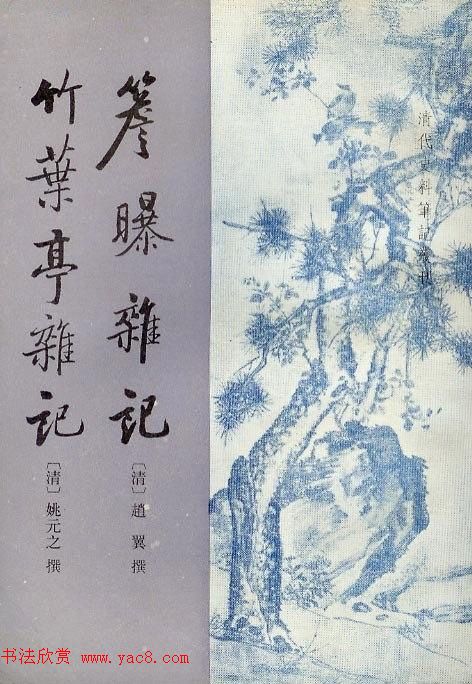 清代史料筆記叢刊
簷曝雜記
〔清〕趙翼撰
竹葉亭雜記
〔清〕姚元之撰
书法欣赏 www.yac8.com